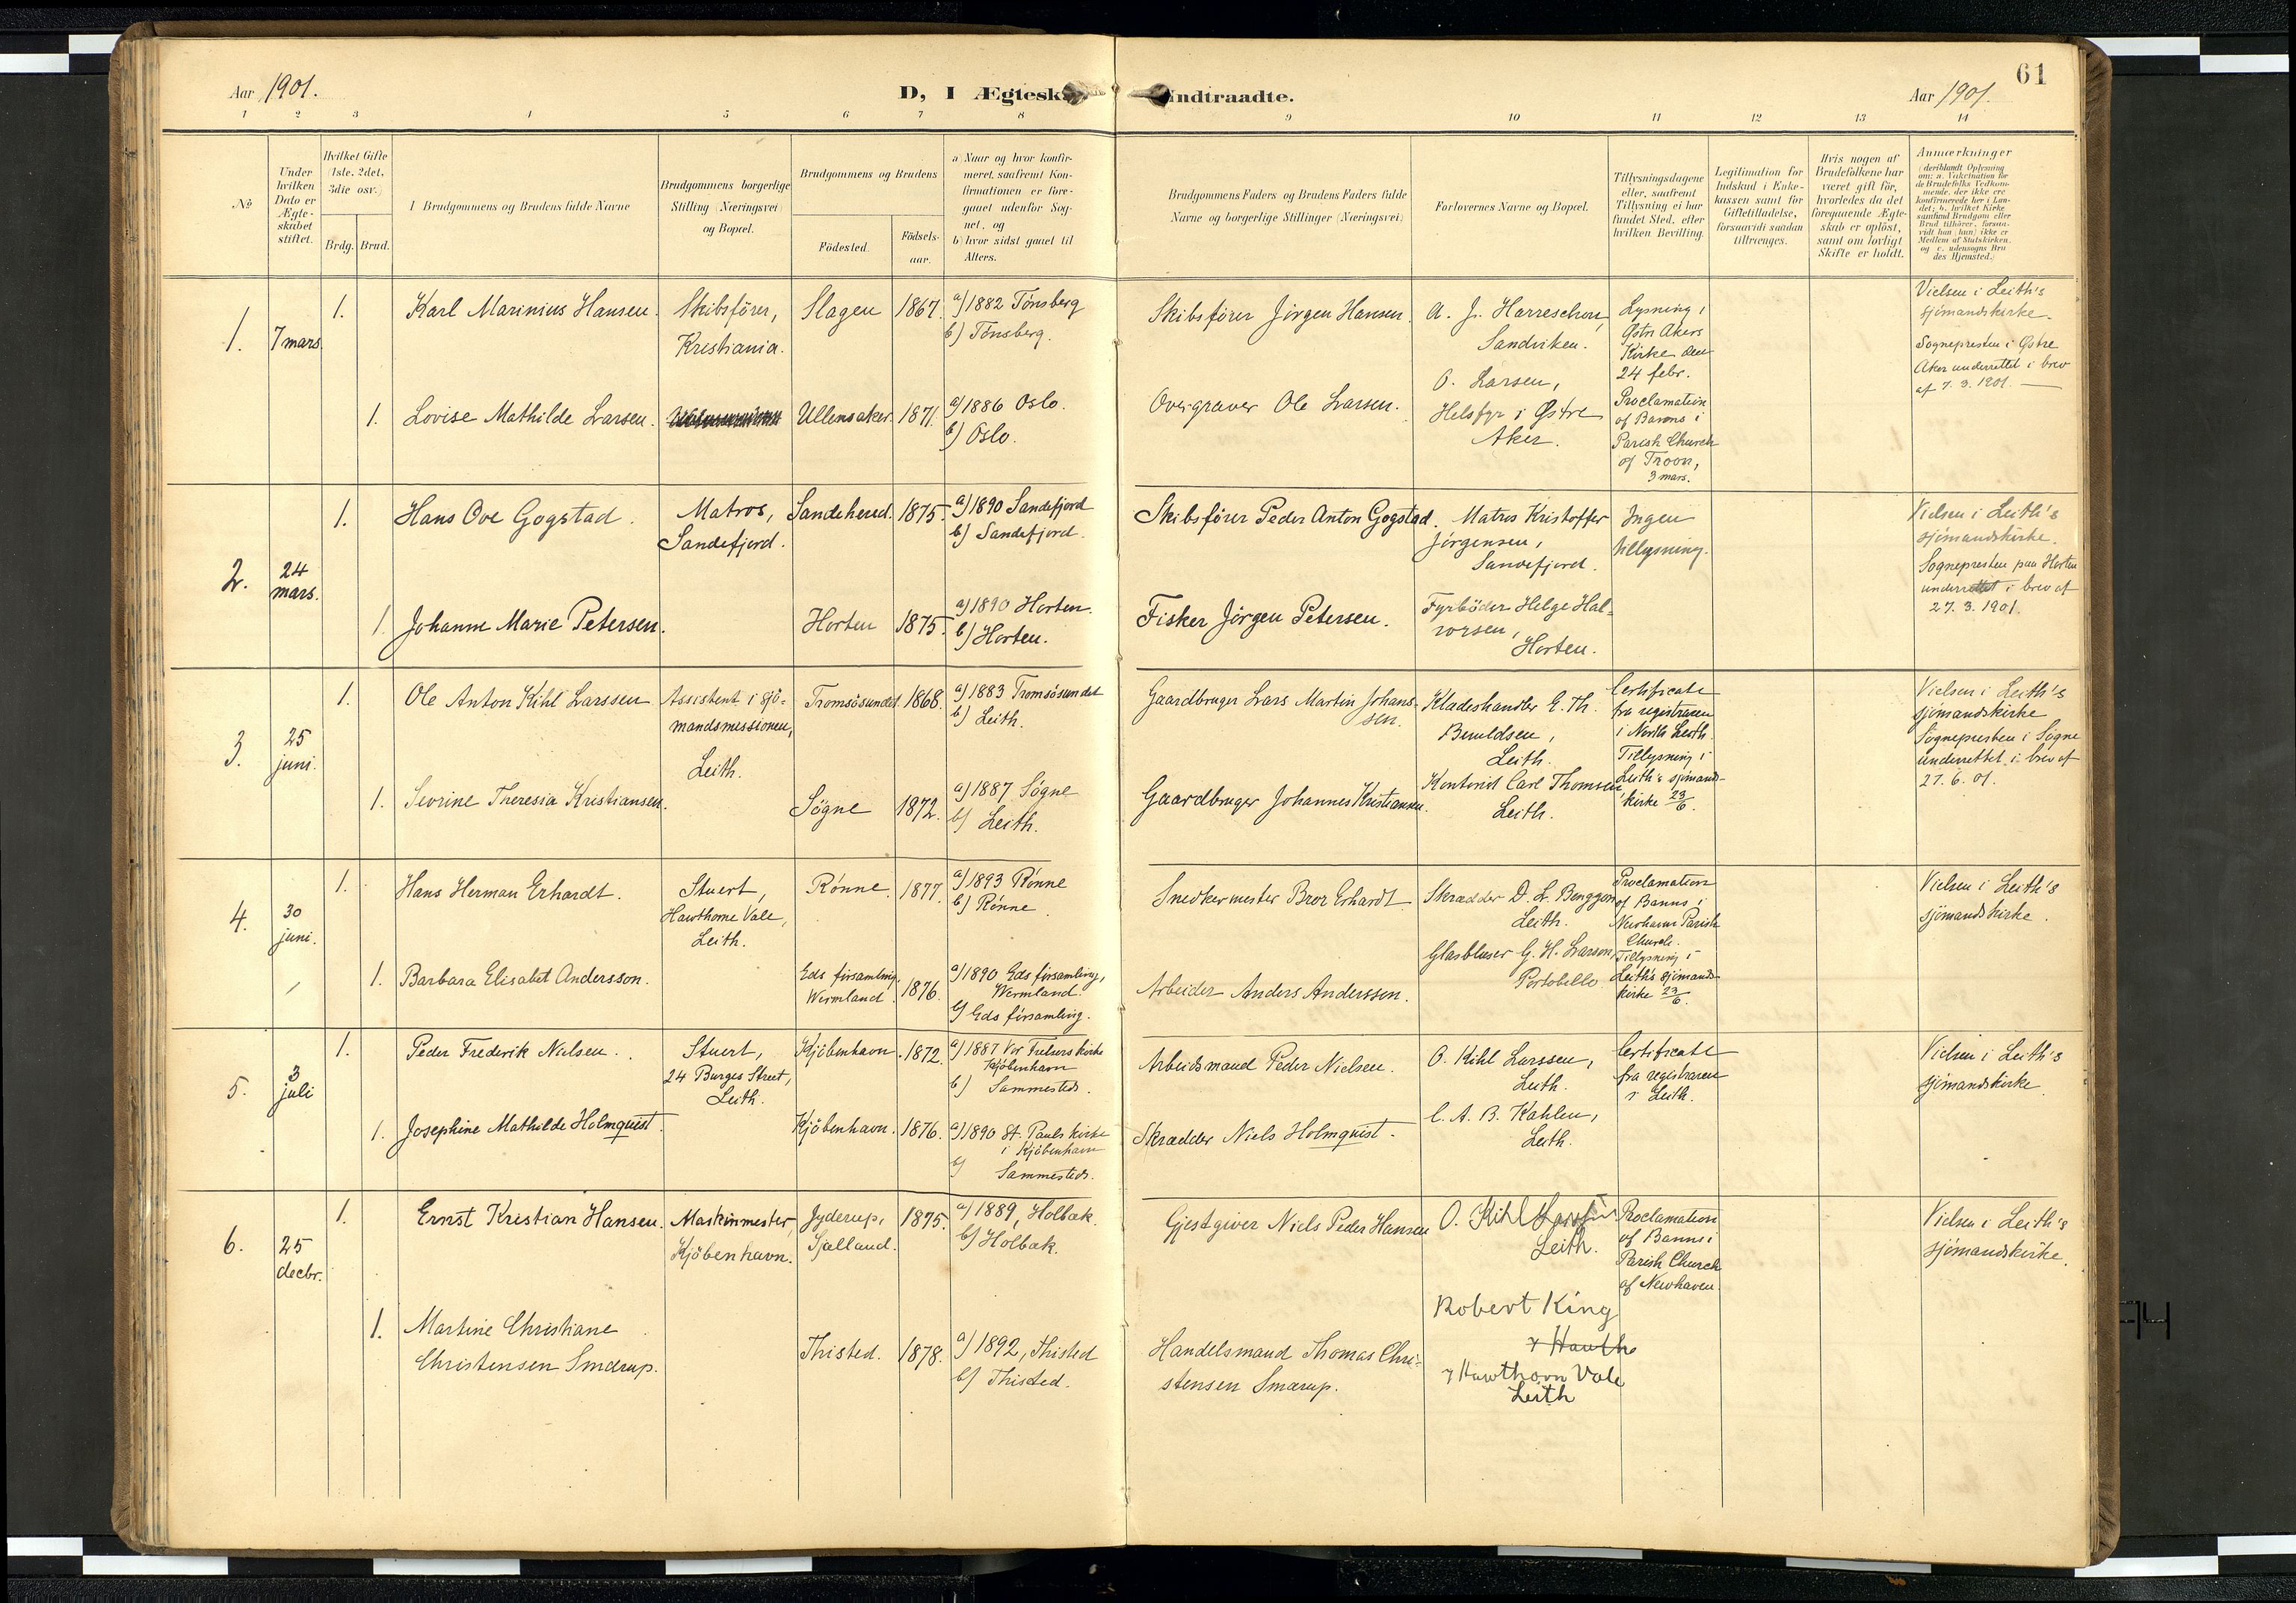 Aar 1901.
D, I Ægtesk
indtraadte.
Aar 1901.
61
1 2 3 4 5 6 7 8 9 10 11 12 13 14
No
Under
hvilken
Dato er
Ægte-
skabet
stiftet.
Hvilket Gifte
(1ste, 2det,
3die osv.)
Brdg. Brud.
Brudgommens og Brudens fulde Navne
Brudgommens borgerlige
Stilling (Næringsvei)
og Bopæl.
Brudgommens og Brudens
Födested.
Födsels-
aar.
a) Naar og hvor konfir-
meret, saafremt Kon-
firmationen er fore-
gaaet udenfor Sog-
net, og
b) hvor sidst gaaet til
Alters.
Brudgommens Faders og Brudens Faders fulde
Navne og borgerlige Stillinger (Næringsvei)
Forlovernes Navne og Bopæl.
Tillysningsdagene
eller, saafremt
Tillysning ei har
fundet Sted, efter
hvilken Bevilling.
Legitimation for
Indskud i Enke-
kassen samt for
Giftetilladelse,
forsaavidt saadan
tiltrænges.
Hvis nogen af
Brudefolkene har
været gift før,
hvorledes da det
foregaaende Ægte-
skab er oplöst,
samt om lovligt
Skifte er holdt.
Anmærkninger
(deriblandt Oplysning
om: a. Vakcination for
de Brudefolks Vedkom-
mende, der ikke ere
konfirmerede her i Lan-
det; b. hvilket Kirke-
samfund Brudgom eller
Brud tilhører, forsaa-
vidt han (hun) ikke er
Medlem af Statskirken,
og c. udensogns Bru-
des Hjemsted.)
1.
7 mars
1.
Karl Marinius Hansen.
Skibsförer,
Kristiania.
Slagen
1867.
a) 1882 Tönsberg
b) Tönsberg.
Skibsförer Jörgen Hansen.
A. J. Harreschou,
Sandviken.
Lysning i
Østre Akers
Kirke den
24 febr.
Vielsen i Leith's
sjömandskirke.
Sognepresten i Østre
Aker underrettet i brev
af 7. 3. 1901.
1.
Lovise Mathilde Larsen.
Ullensaker.
1871.
a) 1886 Oslo.
b) Oslo.
Overgraver Ole Larsen.
O. Larsen,
Helsfyr i Østre
Aker.
Proclamation
of Banns i
Parish Church
of Troon,
3 mars.
2.
24
mars.
1.
Hans Ove Gogstad.
Matros,
Sandefjord.
Sandeherred.
1875.
a) 1890 Sandefjord
b) Sandefjord.
Skibsförer Peder Anton Gogstad.
Matros Kristoffer
Jörgensen,
Sandefjord.
Ingen
tillysning.
Vielsen i Leith's
sjömandskirke.
Sognepresten paa Horten
underrettet i brev af
27. 3. 1901.
1.
Johanne Marie Petersen.
Horten
1875.
a) 1890 Horten.
b) Horten.
Fisker Jörgen Petersen.
Fyrböder Helge Hal-
vorsen,
Horten.
3.
25
juni.
1.
Ole Anton Kihl Larssen
Assistent i sjö-
mandsmissionen,
Leith.
Tromsösundet
1868.
a) 1883 Tromsösundet
b) Leith.
Gaardbruger Lars Martin Johans-
sen.
Klædeshandler E. Th.
Leith.
Certificate
fra registraren
i North Leith.
Tillysning i
Leith's sjömands-
kirke 23/6.
Vielsen i Leith's
sjömandskirke
Sognepresten i Søgne
underrettet i brev af
27. 6. 01.
1.
Sevrine Theresia Kristiansen.
Sögne
1872.
a) 1887 Sögne
b) Leith.
Gaardbruger Johannes Kristiansen.
Kontorist Carl Thomsen,
Leith.
4.
30
juni.
1.
Hans Herman Erhardt.
Stuert,
Hawthorne Vale,
Leith.
Rönne
1877.
a) 1893 Rönne
b) Rönne.
Snedkermester Bror Erhardt
Skrædder D. L. Benggon
Leith.
Proclamation
of Banns i
Newhaven Parish
Church.
Tillysning i
Leith's sjömands-
kirke 23/6.
Vielsen i Leith's
sjömandskirke.
1.
Barbara Elisabet Andersson.
Eds församling,
Wermland.
1876.
a) 1890 Eds församling,
Wermland.
b) Eds församling.
Arbeider Anders Anderssen.
Glasblæser G. H. Larson,
Portobello
5.
3
juli
1.
Peder Frederik Nielsen.
Stuert,
24 Burges Street,
Leith.
Kjöbenhavn.
1872.
a) 1887 Vor Frelsers kirke
Kjöbenhavn
b) Sammesteds.
Arbeidsmand Peder Nielsen.
O. Kihl Larssen,
Leith.
Certificate
fra registraren
i Leith.
Vielsen i Leith's
sjömandskirke
1.
Josephine Mathilde Holmquist.
Kjöbenhavn.
1876.
a) 1890 St. Pauls kirke
i Kjöbenhavn
b) Sammesteds.
Skrædder Niels Holmquist.
C. A. B. Kahlen,
Leith.
6.
25
decbr.
1.
Ernst Kristian Hansen.
Maskinmester,
Kjöbenhavn.
Jyderup,
Sjælland.
1875.
a) 1889, Holbæk.
b) Holbæk.
Gjestgiver Niels Peder Hansen
O. Kihl Larssen
Leith.
Proclamation
of Banns i
Parish Church
of Newhaven.
Vielsen i Leith's
sjömandskirke.
1.
Martine Christiane
Christensen Smerup.
Thisted.
1878.
a) 1892, Thisted
b) Thisted.
Handelsmand Thomas Chri-
stensen Smerup.
Robert King
7 Hawtho
7 Hawthorn Vale
Leith